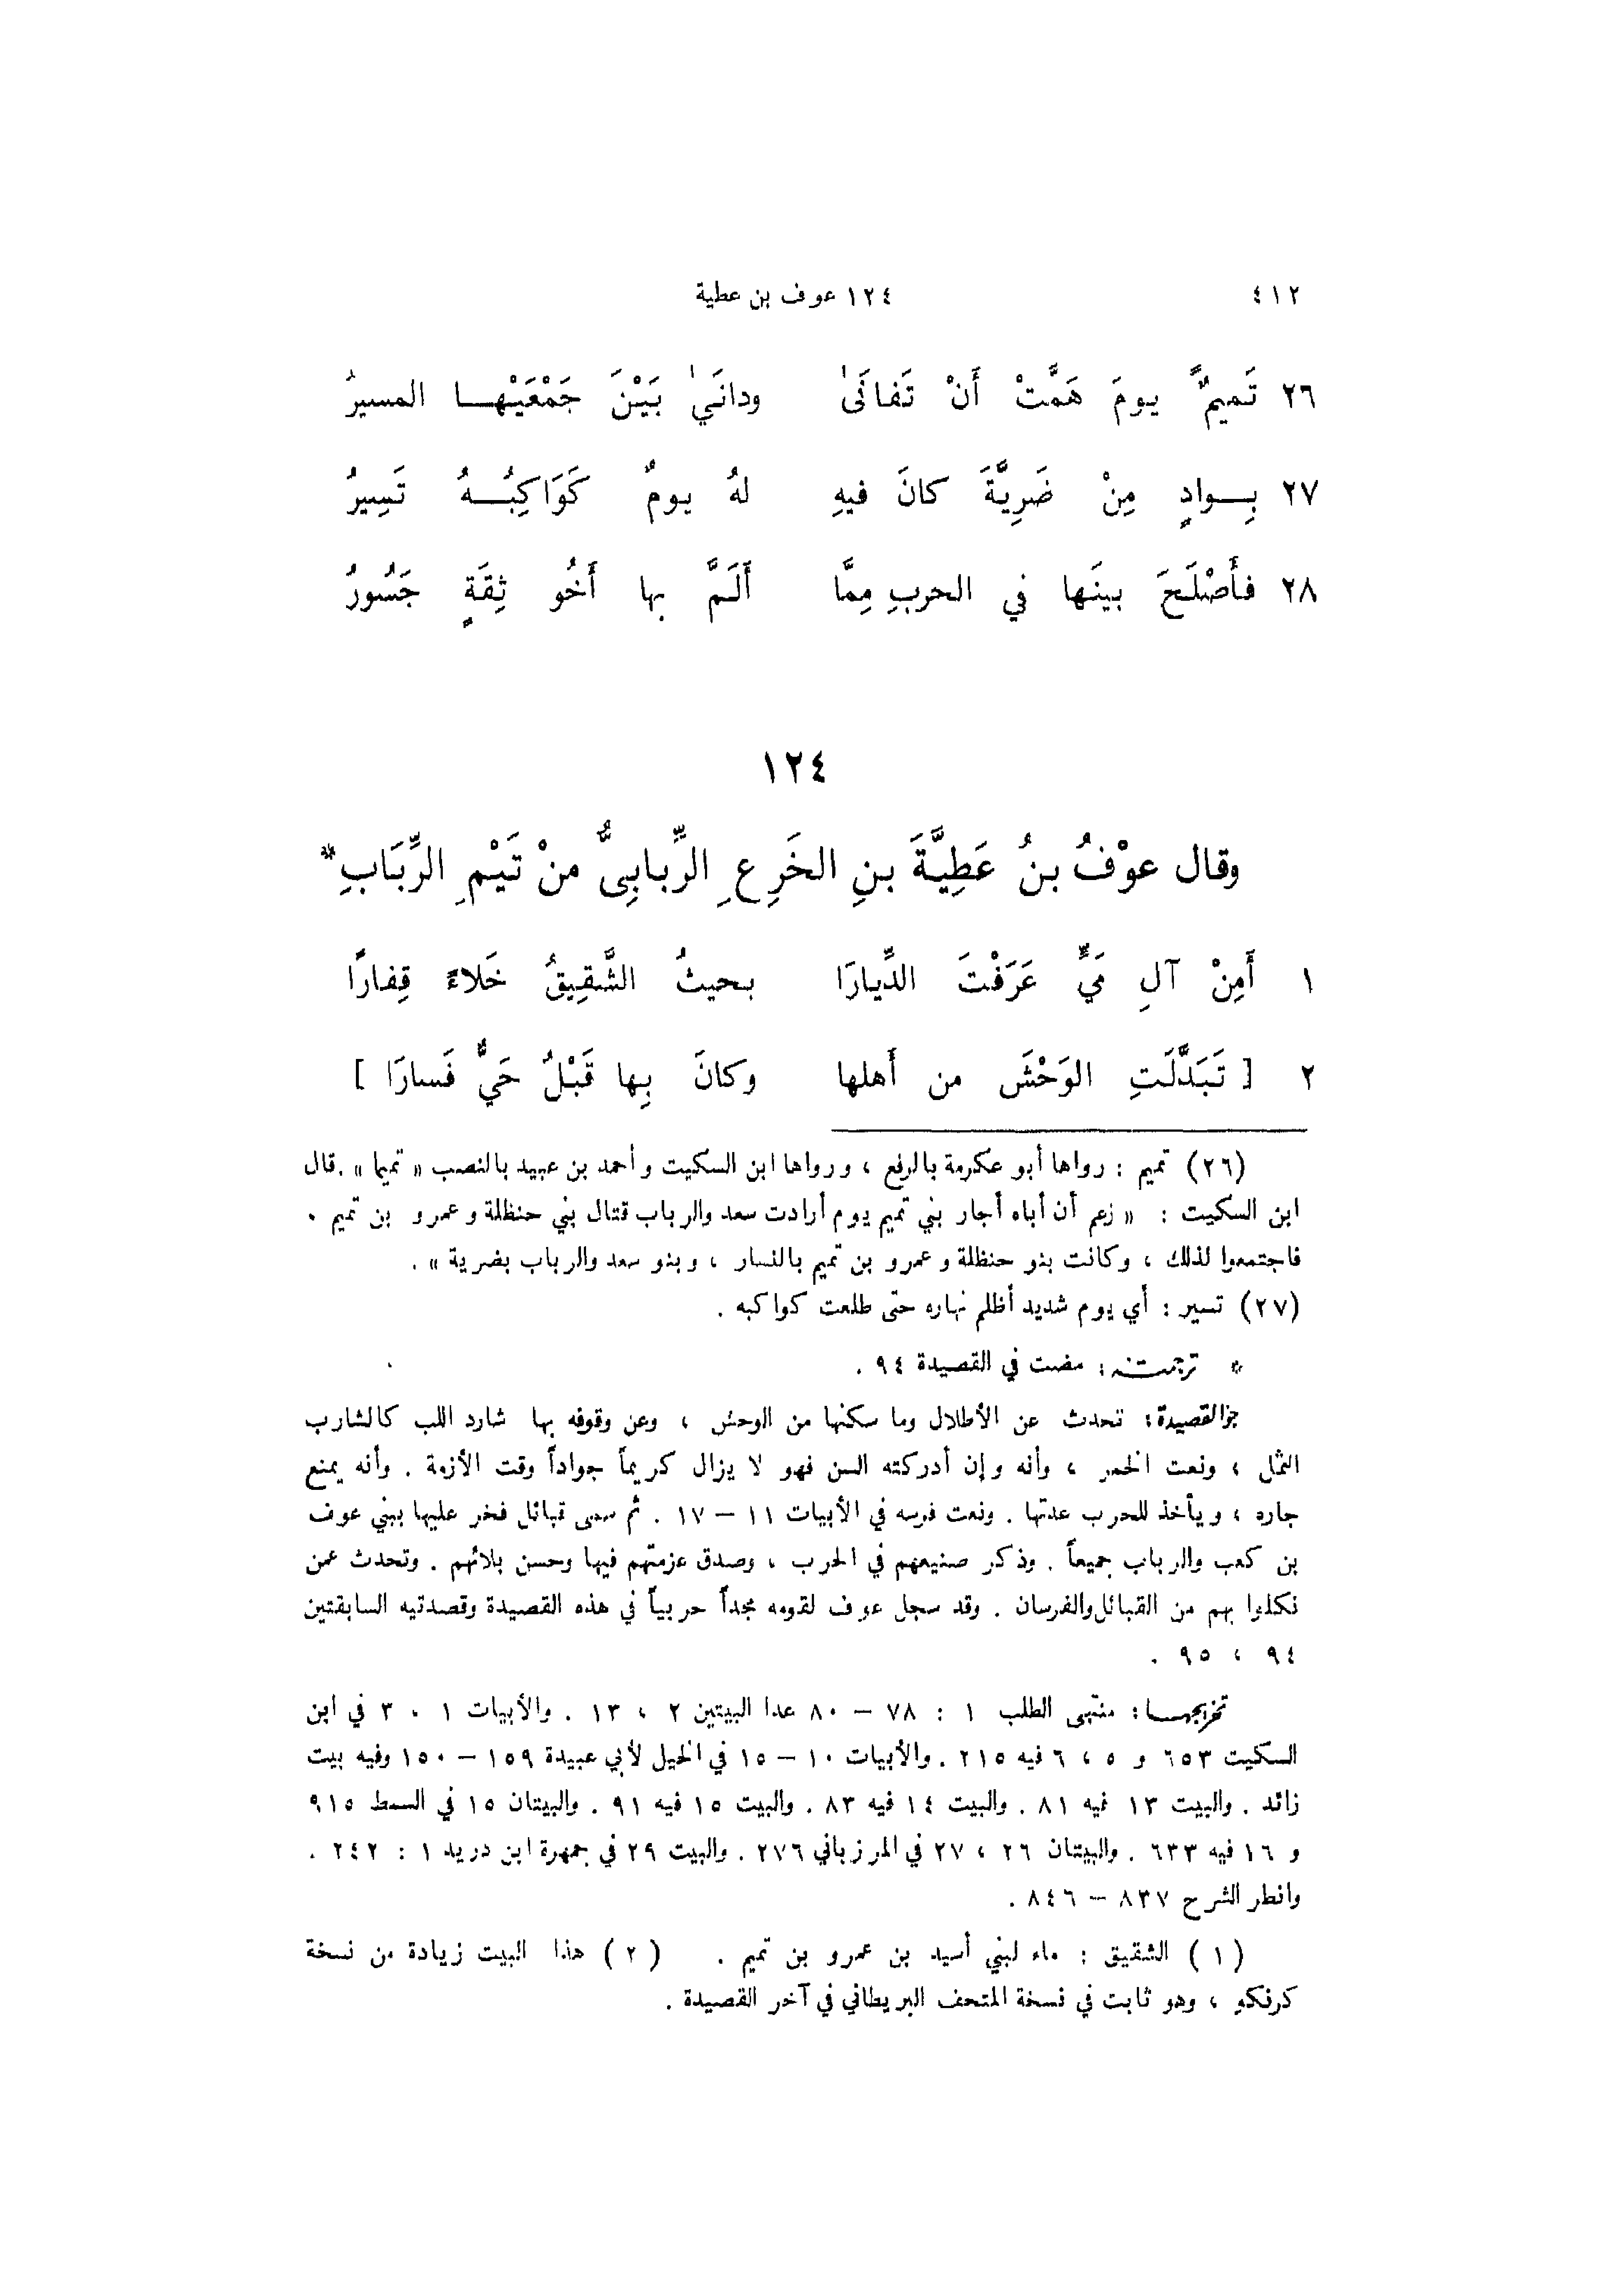 ٤١٢ ١٢٤ عوف بن عطية
٢٦ تَميمٌ يومَ هَمَّتْ أَنْ تَفانَىٰ ودانَىٰ بَيْنَ جَمْعَيْها المسيرُ
٢٧ بِوادٍ مِنْ ضَرِيَّةَ كانَ فيهِ لهُ يومٌ كَوَاكِبُهُ تَسِيرُ
٢٨ فأَصْلَحَ بينَها في الحربِ مِمَّا أَلَمَّ بها أَخُو ثِقَةٍ جَسُورُ
١٢٤
وقال عوْفُ بنُ عَطِيَّةَ بنِ الخَرِعِ الرِّبابِىُّ منْ تَيْمِ الرِّبَابِ*
١ أَمِنْ آلِ مَيٍّ عَرَفْتَ الدِّيارَا بحيثُ الشَّقِيقُ خَلاءً قِفارًا
٢ [ تَبَدَّلَتِ الوَحْشَ من أَهلها وكانَ بِها قَبْلُ حَيٌّ فَسارَا ]
(٢٦) تميم : رواها أبو عكرمة بالرفع ، ورواها ابن السكيت وأحمد بن عبيد بالنصب « تميما » . قال
ابن السكيت : « زعم أن أباه أجار بني تميم يوم أرادت سعد والرباب قتال بني حنظلة وعمرو بن تميم .
فاجتمعوا لذلك ، وكانت بنو حنظلة وعمرو بن تميم بالنسار ، وبنو سعد والرباب بضرية » .
(٢٧) تسير : أي يوم شديد أظلم نهاره حتى طلعت كواكبه .
* ترجمته : مضت في القصيدة ٩٤ .
جوالقصيدة : تحدث عن الأطلال وما سكنها من الوحش ، وعن وقوفه بها شارد اللب كالشارب
الثمل ، ونعت الخمر ، وأنه وإن أدركته السن فهو لا يزال كريماً جواداً وقت الأزمة . وأنه يمنع
جاره ، ويأخذ للحرب عدتها . ونعت فرسه في الأبيات ١١ – ١٧ . ثم سمى قبائل فخر عليها ببني عوف
بن كعب والرباب جميعاً . وذكر صنيعهم في الحرب ، وصدق عزمتهم فيها وحسن بلائهم . وتحدث عمن
نكلوا بهم من القبائل والفرسان . وقد سجل عوف لقومه مجداً حربياً في هذه القصيدة وقصدتيه السابقتين
٩٤ ، ٩٥ .
تخريجها : منتهى الطلب ١ : ٧٨ – ٨٠ عدا البيتين ٢ ، ١٣ . والأبيات ١ ، ٣ في ابن
السكيت ٦٥٣ و ٥ ، ٦ فيه ٢١٥ . والأبيات ١٠ – ١٥ في الخيل لأبي عبيدة ١٥٩ – ١٥٠ وفيه بيت
زائد . والبيت ١٣ فيه ٨١ . والبيت ١٤ فيه ٨٣ . والبيت ١٥ فيه ٩١ . والبيتان ١٥ في السمط ٩١٥
و ١٦ فيه ٦٣٣ . والبيتان ٢٦ ، ٢٧ في المرزباني ٢٧٦ . والبيت ٢٩ في جمهرة ابن دريد ١ : ٢٤٢ .
وانظر الشرح ٨٣٧ – ٨٤٦ .
(١) الشقيق : ماء لبني أسيد بن عمرو بن تميم . (٢) هذا البيت زيادة من نسخة
كرنكو ، وهو ثابت في نسخة المتحف البريطاني في آخر القصيدة .